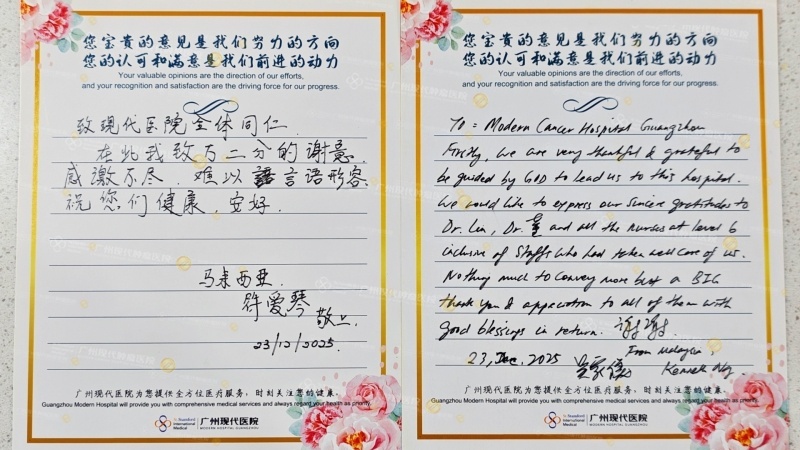 您宝贵的意见是我们努力的方向
您的认可和满意是我们前进的动力
Your valuable opinions are the direction of our efforts,
and your recognition and satisfaction are the driving force for our progress.
致现代医院全体同仁
在此我致万二分的谢意.
感激不尽.难以言语形容.
祝您们健康.安好.
马来西亚.
许爱琴
敬上.
23/12/2025.
广州现代医院为您提供全方位医疗服务,时刻关注您的健康。
Guangzhou Modern Hospital will provide you with comprehensive medical services and always regard your health as priority.
St. Stamford International Medical
广州现代医院
MODERN HOSPITAL GUANGZHOU
您宝贵的意见是我们努力的方向
您的认可和满意是我们前进的动力
Your valuable opinions are the direction of our efforts,
and your recognition and satisfaction are the driving force for our progress.
To = Modern Cancer Hospital Guangzhou
Firstly, we are very thankful & grateful to
be guided by GOD to lead us to this hospital.
We would like to express our sincere gratitudes to
Dr. Lin, Dr. and all the nurses at level 6
inclusive of Staffs who had taken well care of us.
Nothing much to convey more but a BIG
thank you & appreciation to all of them with
good blessings in return. 谢谢.
23, Dec, 2025
From Malaysia,
Kenneth Ng.
广州现代医院为您提供全方位医疗服务,时刻关注您的健康。
Guangzhou Modern Hospital will provide you with comprehensive medical services and always regard your health as priority.
St. Stamford International Medical
广州现代医院
MODERN HOSPITAL GUANGZHOU